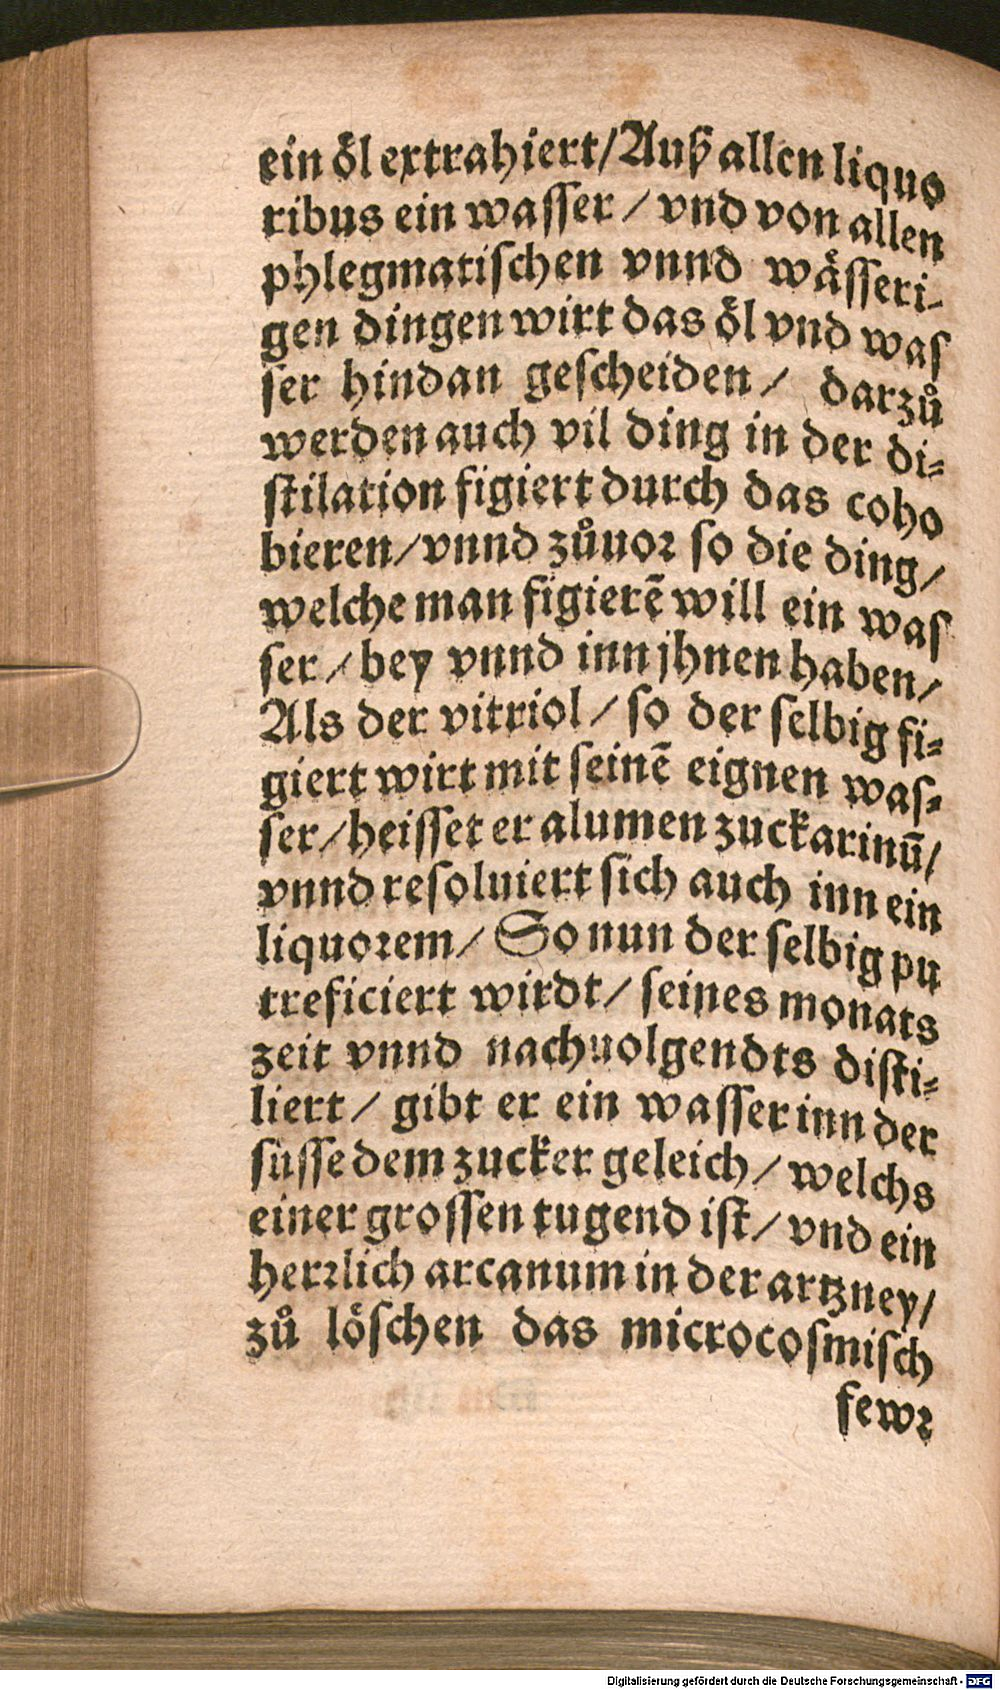 ein öl extrahiert/Auß allen liquo
ribus ein wasser / vnd von allen
phlegmatischen vnnd wåsseri-
gen dingen wirt das öl vnd was
ser hindan gescheiden / darzů
werden auch vil ding in der di-
stilation figiert durch das coho
bieren/vnnd zůuor so die ding/
welche man figierē will ein was
ser / bey vnnd inn jhnen haben/
Als der vitriol / so der selbig fi-
giert wirt mit seinē eignen was-
ser/heisset er alumen zuckarinū/
vnnd resoluiert sich auch inn ein
liquorem/ So nun der selbig pu
treficiert wirdt/ seines monats
zeit vnnd nachuolgendts disti-
liert / gibt er ein wasser inn der
süsse dem zucker geleich / welchs
einer grossen tugend ist / vnd ein
herrlich arcanum in der artzney/
zů löschen das microcosmisch
fewr
Digitalisierung gefördert durch die Deutsche Forschungsgemeinschaft - DFG